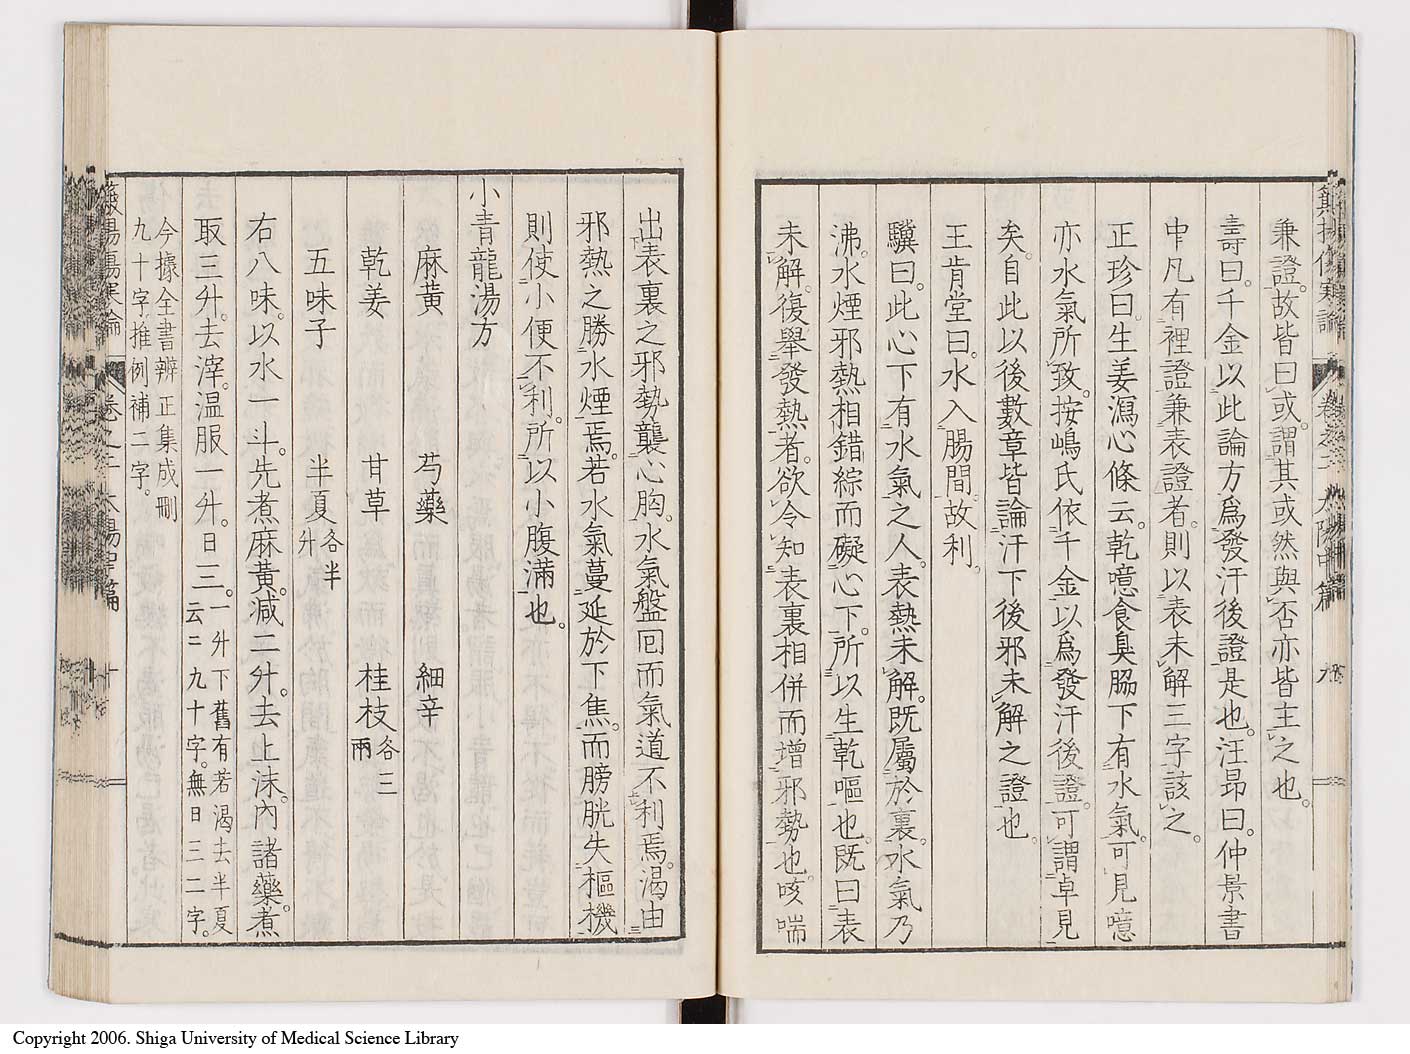 兼證。故皆曰或。謂其或然與否亦皆主之也。
壽曰。千金以此論方爲發汗後證是也。汪昻曰。仲景書
中凡有裡證兼表證者。則以表未解三字該之。
正珍曰。生姜瀉心條云。乾噫食臭脇下有水氣。可見噫
亦水氣所致。按嶋氏依千金以爲發汗後證。可謂卓見
矣。自此以後數章皆論汗下後邪未解之證也。
王肯堂曰。水入腸間。故利。
驥曰。此心下有水氣之人。表熱未解。既屬於裏。水氣乃
沸。水煙邪熱相錯綜而礙心下。所以生乾嘔也。既曰表
未解。復舉發熱者。欲令知表裏相併而增邪勢也。咳喘
出表裏之邪勢襲心胸。水氣盤囘而氣道不利焉。渴由
邪熱之勝水煙焉。若水氣蔓延於下焦。而膀胱失樞機
則使小便不利。所以小腹滿也。
小青龍湯方
麻黃 芍藥 細辛
乾姜 甘草 桂枝各三兩
五味子 半夏各半升
右八味。以水一斗。先煮麻黃。減二升。去上沫。內諸藥。煮
取三升。去滓。温服一升。日三。一升下舊有若渴去半夏
云二九十字。無日三二字。
今據全書辨正集成刪
九十字推例補二字。
卷之二 太陽中篇 九
卷之二 太陽中篇 十